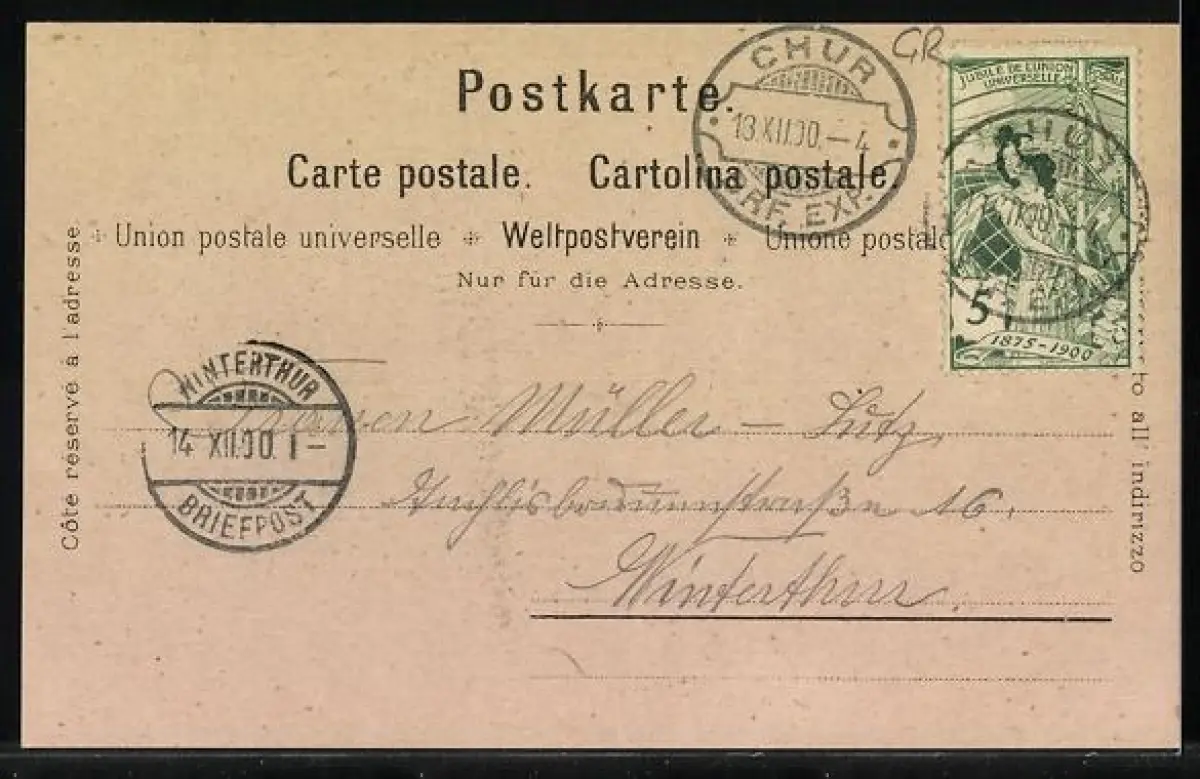 GR
Postkarte.
Carte postale. Cartolina postale.
Union postale universelle Weltpostverein Unione postale
Nur für die Adresse.
Côte réservé à l'adresse
to all' indirizzo
CHUR
13.XII.00.-4
BRF. EXP.
JUBILÉ DE L'UNION
UNIVERSELLE
5
1875-1900
WINTERTHUR
14.XII.00.1-
BRIEFPOST
Müller - Lutz
16.
Winterthur.